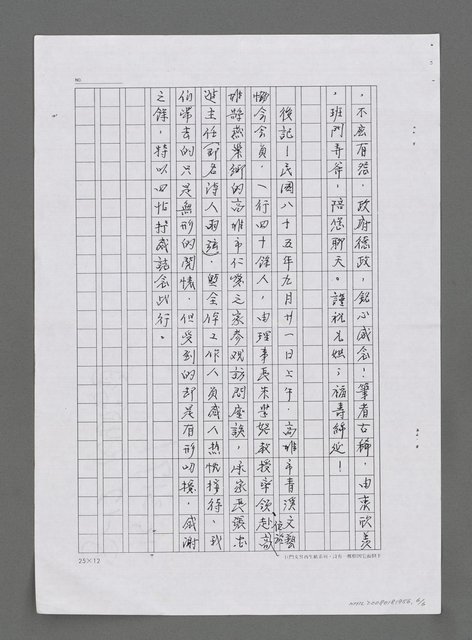 NO.
，不虞有路，政府德政，銘心感念！筆者古稀，由衷欣羨
，班門弄斧，陪您聊天。謹祝兄姐；福壽綿延！
後記！民國八十五年九月廿一日上午，高雄市青溪文藝
協會會員，一行四十餘人，由理事長朱學恕教授率領，赴
雄縣燕巢鄉的高雄市仁愛之家參觀訪問座談，承家長張志
遊主任（即名詩人雨弦），暨全体工作人員感人熱忱接待，我
伯帶去的只是無形的關懷，但受到的却是有形叨擾，感謝
之餘，特以四帖抒感誌念此行。
25×12
NMTL20080181956, 6/6